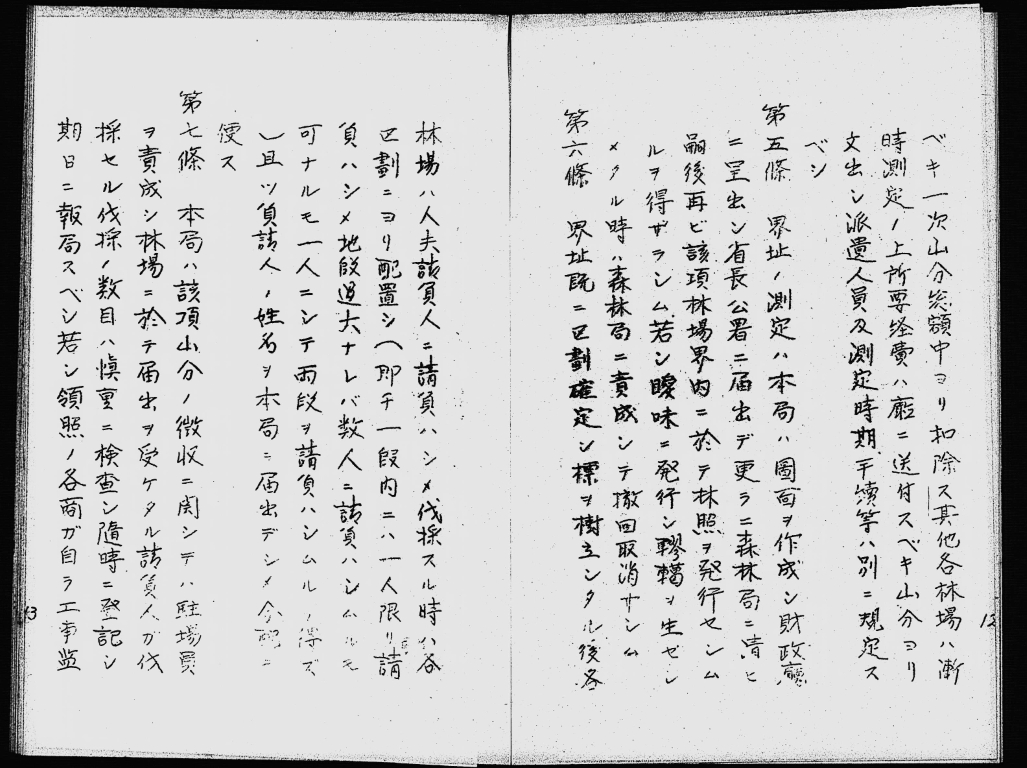 ベキ一次山分総額中ヨリ扣除ス其他各林場ハ漸
時測定ノ上所要経費ハ廳ニ送付スベキ山分ヨリ
支出シ派遣人員及測定時期手續等ハ別ニ規定ス
ベシ
第五條 界址ノ測定ハ本局ハ圖面ヲ作成シ財政廳
ニ呈出シ省長公署ニ届出デ更ラニ森林局ニ請ヒ
嗣後再ビ該項林場界内ニ於テ林照ヲ発行セシム
ルヲ得ザラシム若シ曖昧ニ発行シ轇轕ヲ生ゼシ
メタル時ハ森林局ニ責成シテ撤回取消サシム
第六條 界址既ニ区劃確定シ標ヲ樹立シタル後各
12
林場ハ人夫請負人ニ請負ハシメ伐採スル時ハ各
区劃ニヨリ配置シ(即チ一段内ニハ一人限リ請
負ハシメ地段過大ナレバ数人ニ請負ハシムルモ
可ナルモ一人ニシテ両段ヲ請負ハシムルヲ得ズ
)且ツ負請人ノ姓名ヲ本局ニ届出デシメ分配ニ
便ス
第七條 本局ハ該項山分ノ徴収ニ関シテハ駐場員
ヲ責成シ林場ニ於テ届出ヲ受ケタル請負人ガ伐
採セル伐採ノ数目ハ慎重ニ検査シ随時ニ登記シ
期日ニ報局スベシ若シ領照ノ各商ガ自ラ工事監
13